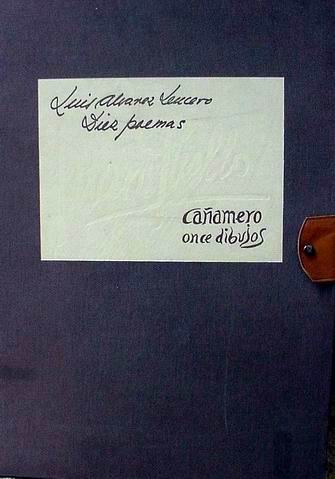 Luis Alvarez Lencero
Diez poemas
cañamero
once dibujos